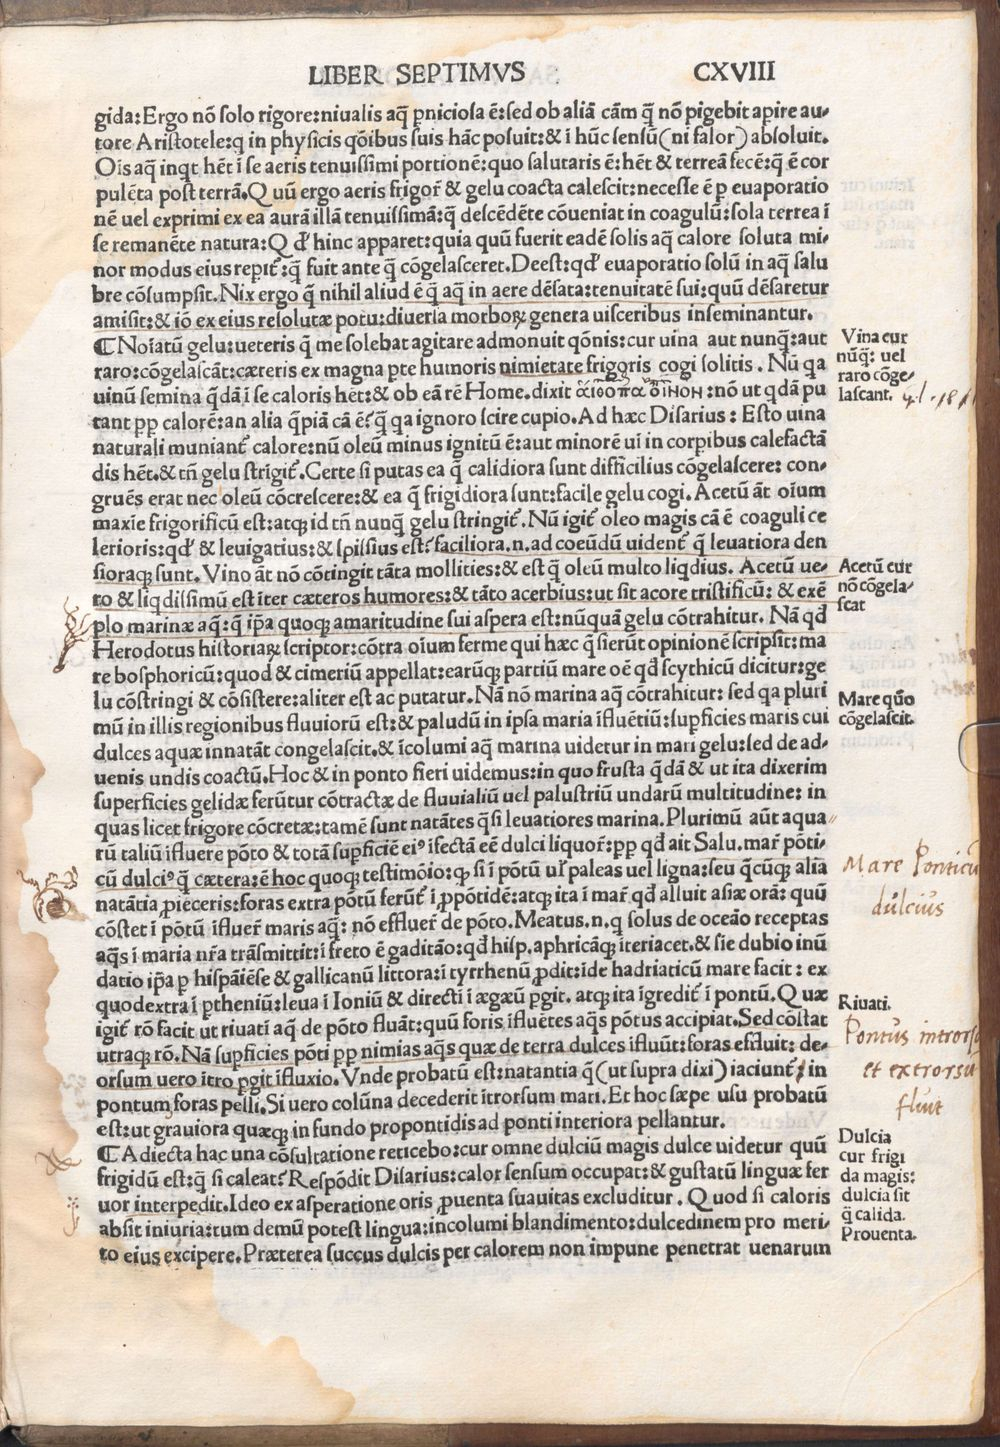 LIBER SEPTIMVS CXVIII
gida:Ergo nō solo rigore:niualis aq̄ pniciosa ē:sed ob aliā cām q̄ nō pigebit apire au-
tore Aristotele:q in physicis qōibus suis hāc posuit:& ī hūc sensū(ni falor)absoluit.
Ois aq̄ inqt hēt ī se aeris tenuissimi portionē:quo salutaris ē:hēt & terreā fecē:q̄ ē cor
pulēta post terrā.Quū ergo aeris frigor̄ & gelu coacta calescit:necesse ē p euaporatio
nē uel exprimi ex ea aurā illā tenuissimā:q̄ descēdēte cōueniat in coagulū:sola terrea ī
se remanēte natura:Qd̄ hinc apparet:quia quū fuerit eadē solis aq̄ calore soluta mi-
nor modus eius repit̄:q̄ fuit ante q̄ cōgelasceret.Deest:qd̄ euaporatio solū in aq̄ salu
bre cōsumpsit.Nix ergo q̄ nihil aliud ē q̄ aq̄ in aere dēsata:tenuitatē sui:quū dēsaretur
amisit:& iō ex eius resolutæ potu:diuersa morboꝝ genera uisceribus inseminantur.
¶Noiatū gelu:ueteris q̄ me solebat agitare admonuit qōnis:cur uina aut nunq̄:aut
raro:cōgelascāt:cæteris ex magna pte humoris nimietate frigoris cogi solitis. Nū qa
uinū semina q̄dā ī se caloris hēt:& ob eā rē Home.dixit ἀίθοπα ὂινον:nō ut qdā pu
tant pp calorē:an alia q̄piā cā ē?q̄ qa ignoro scire cupio.Ad hæc Disarius: Esto uina
naturali muniant̄ calore:nū oleū minus ignitū ē:aut minorē uī in corpibus calefactā
dis hēt.& tn̄ gelu strīgit̄.Certe si putas ea q̄ calidiora sunt difficilius cōgelascere: con-
gruēs erat nec oleū cōcrescere:& ea q̄ frigidiora sunt:facile gelu cogi.Acetū āt oīum
maxīe frigorificū est:atqꝫ id tn̄ nunq̄ gelu stringit̄.Nū igit̄ oleo magis cā ē coaguli ce
lerioris:qd̄ & leuigatius:& spissius est?faciliora.n.ad coeūdū uident̄ q̄ leuatiora den
sioraqꝫ sunt. Vino āt nō cōtingit tāta mollities:& est q̄ oleū multo liqdius. Acetū ue-
ro & liqdissimū est īter cæteros humores:& tāto acerbius:ut sit acore tristificū: & exē
plo marinæ aq̄:q̄ ip̄a quoqꝫ amaritudine sui aspera est:nūquā gelu cōtrahitur. Nā qd̄
Herodotus historiaꝝ scriptor:cōtra oīum ferme qui hæc q̄sierūt opinionē scripsit:ma
re bosphoricū:quod & cimeriū appellat:earūqꝫ partiū mare oē qd̄ scythicū dicitur:ge
lu cōstringi & cōsistere:aliter est ac putatur. Nā nō marina aq̄ cōtrahitur: sed qa pluri
mū in illis regionibus fluuiorū est:& paludū in ipsa maria īfluētiū:supficies maris cui
dulces aquæ innatāt congelascit.& īcolumi aq̄ marina uidetur in mari gelu:sed de ad-
uenis undis coactū.Hoc & in ponto fieri uidemus:in quo frusta q̄dā & ut ita dixerim
superficies gelidæ ferūtur cōtractæ de fluuialiū uel palustriū undarū multitudine: in
quas licet frigore cōcretæ:tamē sunt natātes q̄si leuatiores marina.Plurimū aūt aqua
rū taliū īfluere pōto & totā supficiē eiꝰ īfectā eē dulci liquor̄:pp qd̄ ait Salu. mar̄ pōti-
cū dulciꝰ q̄ cætera:ē hoc quoqꝫ testimōio:qꝫ si ī pōtū ul̄ paleas uel ligna:seu q̄cūqꝫ alia
natātia ꝓieceris:foras extra pōtū ferūt̄ ī ꝓpōtidē:atqꝫ ita ī mar̄ qd̄ alluit asiæ orā: quū
cōstet ī pōtū īfluer̄ maris aq̄: nō effluer̄ de pōto. Meatus.n.q solus de oceāo receptas
aq̄s ī maria nr̄a trāsmittit:ī freto ē gaditāo:qd̄ hisp. aphricāqꝫ īteriacet.& sie dubio inū
datio ip̄a p hispāiēse & gallicanū littora:ī tyrrhenū ꝓdit:īde hadriaticū mare facit: ex
quo dextra ī ptheniū:leua ī Ioniū & directi ī ægæū pgit. atqꝫ ita īgredit̄ ī pontū. Quæ
igit̄ rō facit ut riuati aq̄ de pōto fluāt:quū foris īfluētes aq̄s pōtus accipiat.Sed cōstat
utraqꝫ rō. Nā supficies pōti pp nimias aq̄s quæ de terra dulces īfluūt:foras effluit: de-
orsum uero ītro pgit īfluxio. Vnde probatū est:natantia q̄(ut supra dixi)iaciunt̄ in
pontum foras pelli.Si uero colūna decederit ītrorsum mari. Et hoc sæpe usu probatū
est:ut grauiora quæqꝫ in fundo propontidis ad ponti interiora pellantur.
¶Adiecta hac una cōsultatione reticebo:cur omne dulciū magis dulce uidetur quū
frigidū est:q̄ si caleat?Respōdit Disarius:calor sensum occupat:& gustatū linguæ fer
uor interpedit.Ideo ex asperatione oris ꝓuenta suauitas excluditur. Quod si caloris
absit iniuria:tum demū potest lingua:incolumi blandimento:dulcedinem pro meri-
to eius excipere.Præterea succus dulcis per calorem non impune penetrat uenarum
Vina cur
nūq̄: uel
raro cōge-
lascant.
Acetū cur
nō cōgela-
scat
Mare quō
cōgelascit.
Mare Ponticū
dulcius
Riuati.
Pontus introrsū
et extrorsū
fluit
Dulcia
cur frigi
da magis:
dulcia sit
q̄ calida.
Prouenta.